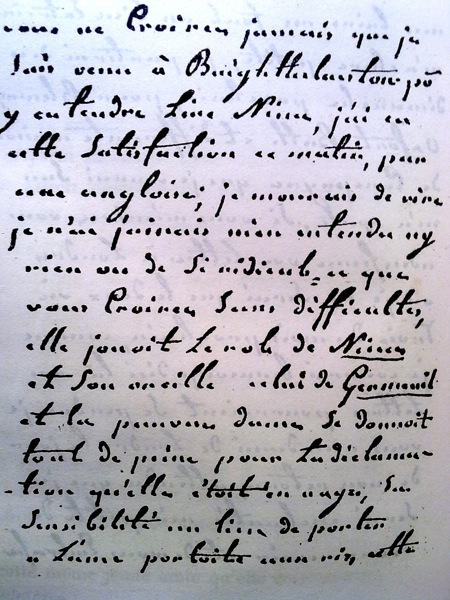 vous ne Croirez jamais que je
Suis venu à Brighthelmston pr
y entendre Lire Nina, j'ai eu
cette Satisfaction ce matin, par
une angloise; je mourais de rire
je n'ai jamais rien entendu ny
rien vu de Si ridicule, ce que
vous Croirez Sans difficultés,
elle jouoit Le rol de Nina
et Son oreille celui de Germeuil
et la pauvre dame Se donnoit
tant de peine pour La declama-
-tion qu'elle étoit en nage, Sa
Sensibilité au lieu de porter
a L'ame portoit au ris, cette